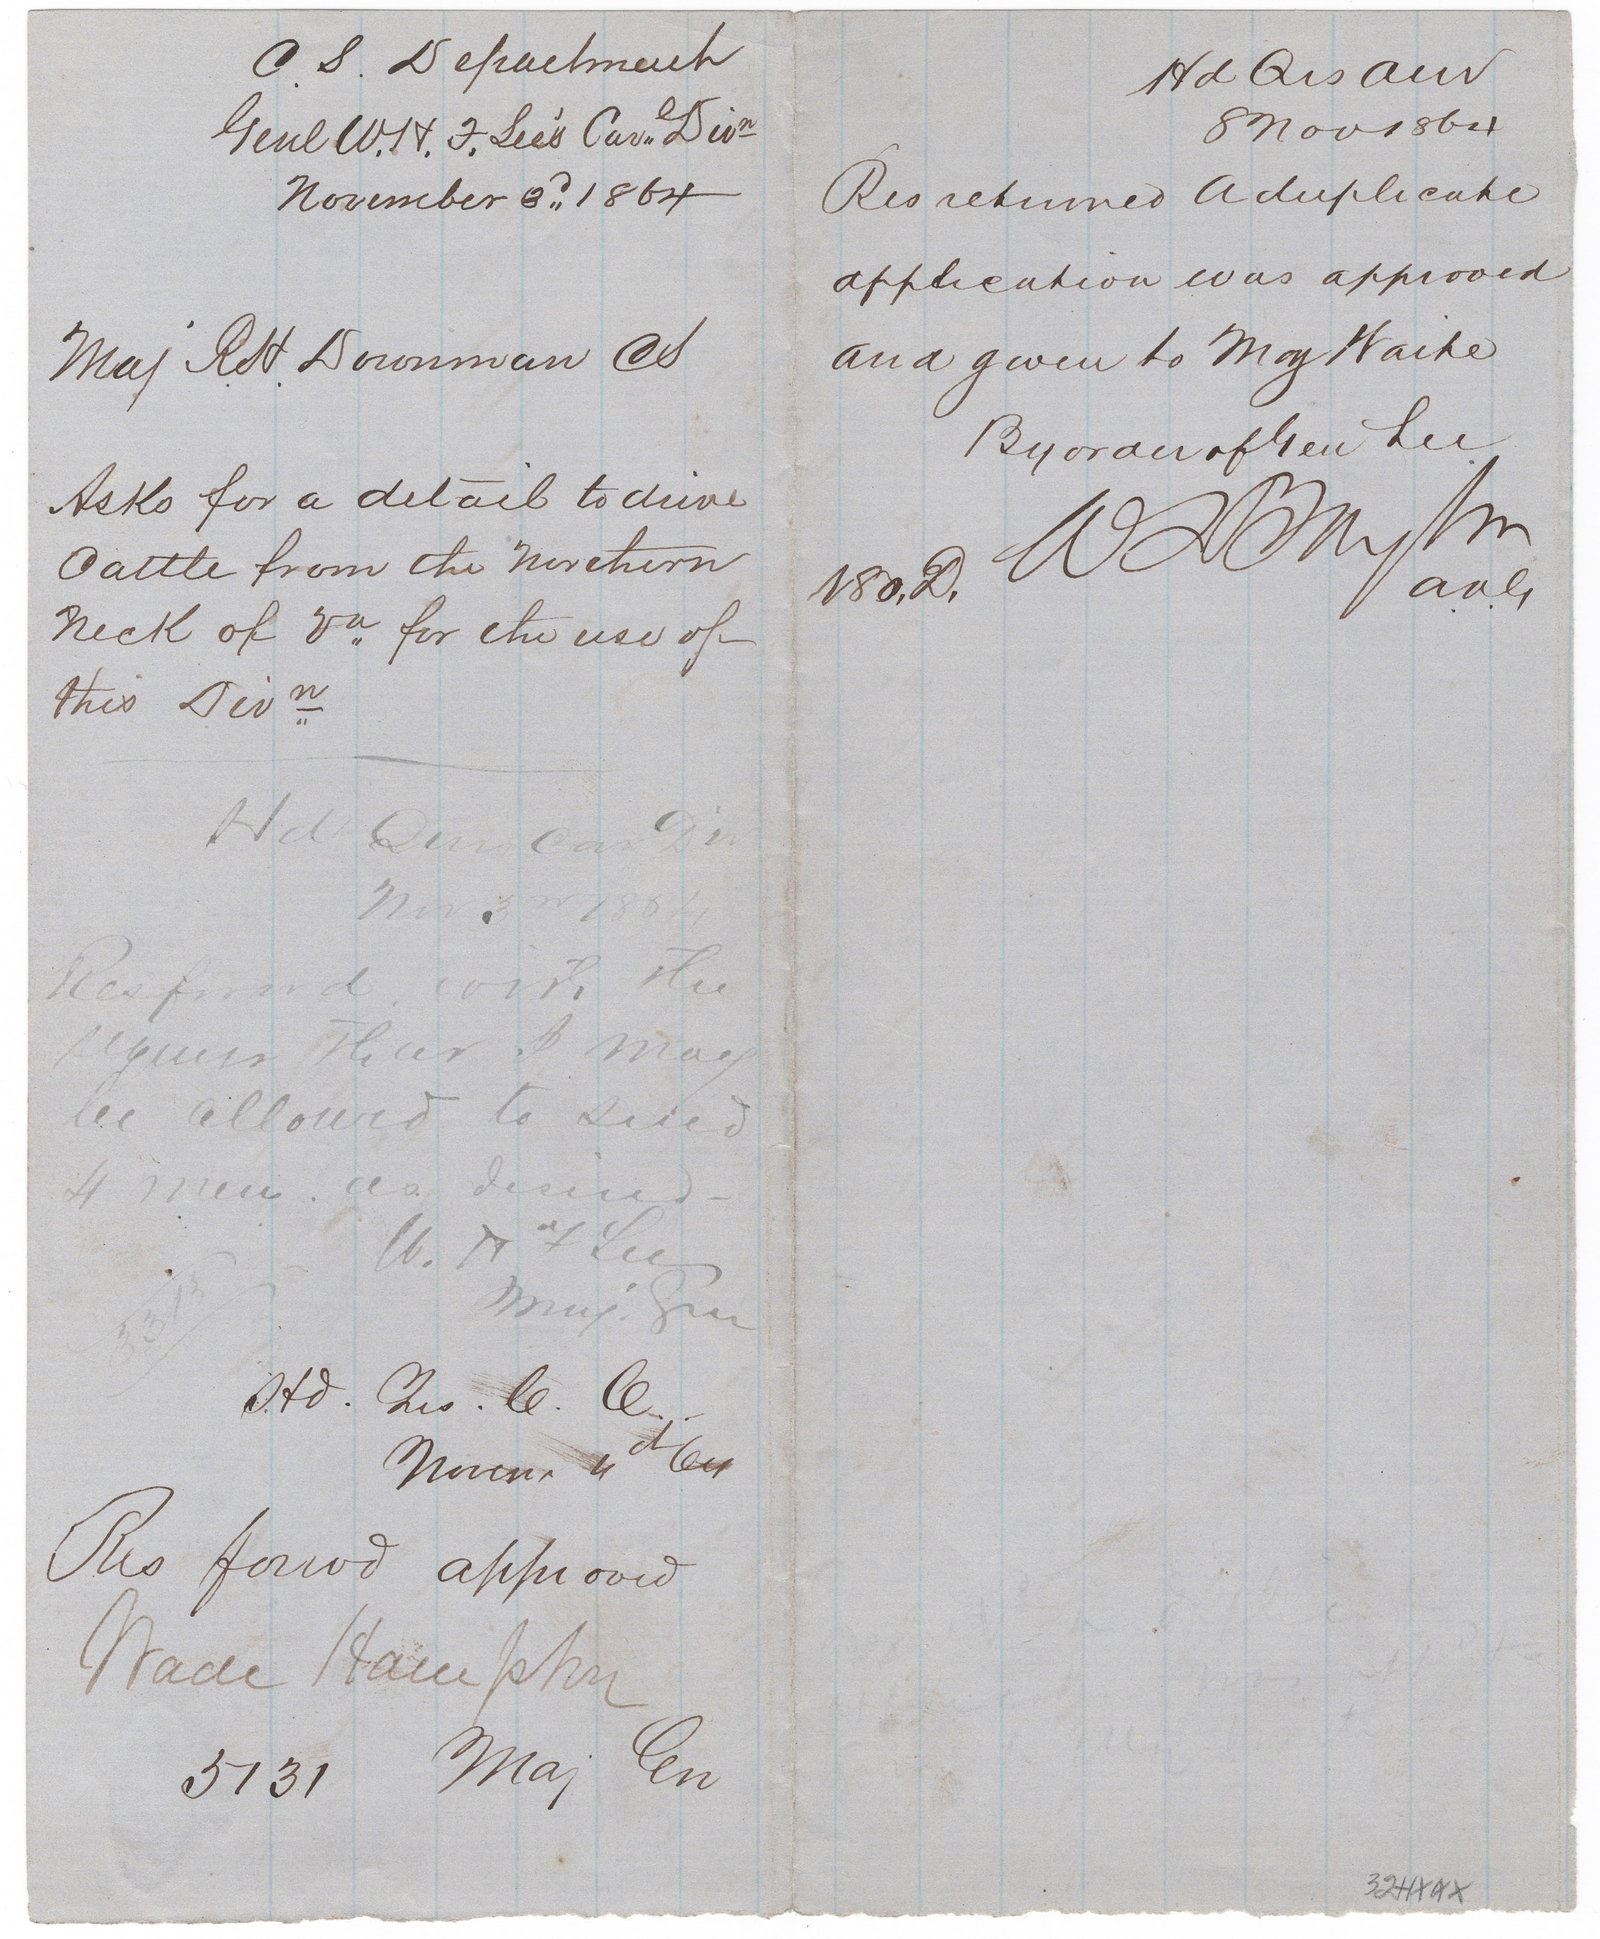 C. S. Department
Genl W. H. F. Lee's Cav.l Divn
November 3d 1864
Maj R. H. Downman CS
Asks for a detail to drive
Cattle from the Northern
Neck of Va for the use of
this Divn
Hd Qurs Cav Div
Nov 3rd 1864
Res forwd with the
request that I may
be allowed to send
4 men as desired -
W. H F Lee
Maj. Gen
3313
Hd. Qrs. C. C.
Novem 4d 64
Res forwd approved
Wade Hampton
5131 Maj Gen
Hd Qrs ANV
8 Nov 1864
Res returned A duplicate
application was approved
and given to Maj Waite
By order of Gen Lee
180. D.
a a G